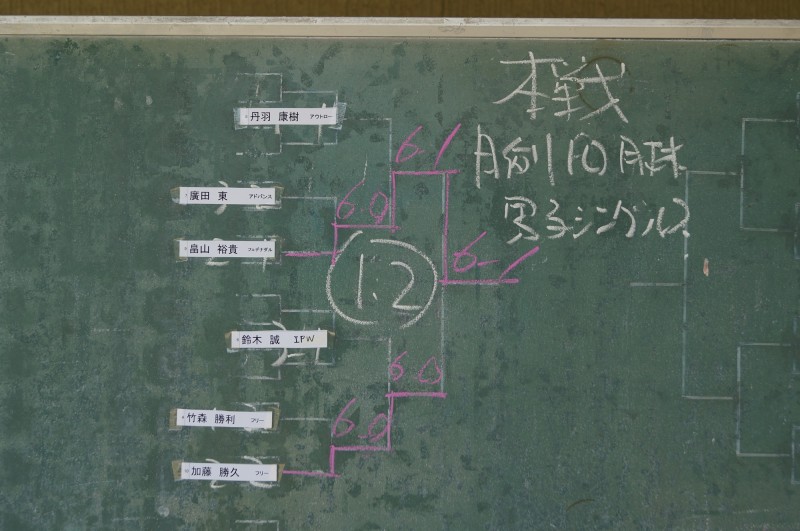 本戦
男子シングルス
丹羽 康樹 アウトロー
6-1
廣田 東 アドバンス
6-0
畠山 裕貴
6-1
1.2
鈴木 誠 IPW
6-0
竹森 勝利 フリー
6-0
加藤 勝久 フリー